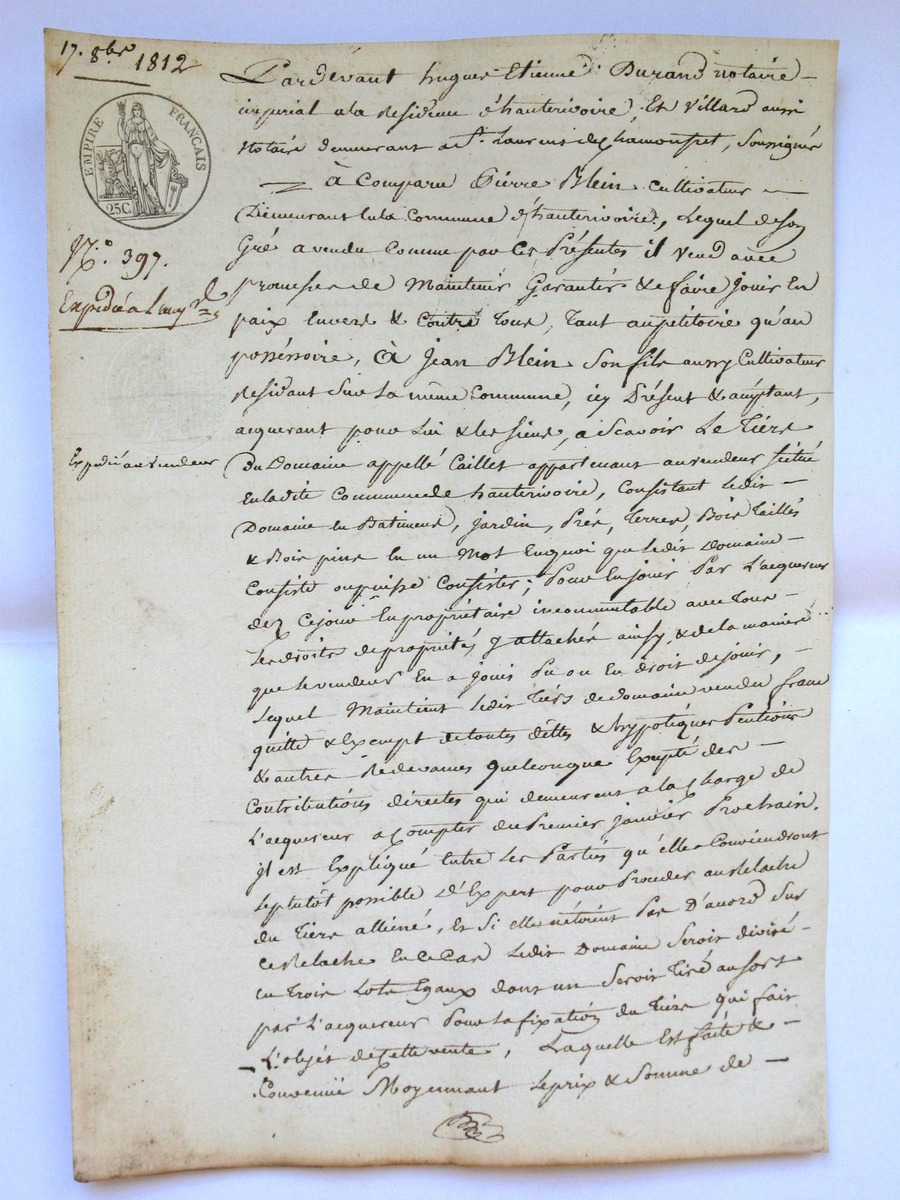 17. 8bre 1812
EMPIRE FRANÇAIS
25C.
N.° 397.
Expédié a Lacqr
Expédié au vendeur
Pardévant hugues Etienne Durand notaire
impérial a la Residence d'hauterivoire, Et Villard aussi
Notaire demeurant a St. Laurent de Chamousset, Soussignés
à Comparu Pierre Blein Cultivateur
Demeurant en la Commune d'hauterivoire, Lequel de son
Gré a vendu Comme par Ces Présentes il vend avec
promesse de Maintenir Garantir & de faire jouir En
paix Envers & Contre Tous, Tant au pétitoire qu'au
posséssoire, à Jean Blein Son fils aussy Cultivateur
Residant Sur La même Commune, icy Présent & acceptant,
acquerant pour Lui & les siens, a Scavoir Le Tiers
Du Domaine appellé Caillet appartenant au vendeur situé
En ladite Commune de hauterivoire, Consistant Ledit
Domaine en Batiments, jardin, Prés, Terres, Bois Taillés
& Bois pins En un Mot En quoi que Ledit Domaine
Consiste ou puisse Consister; Pour En jouir Par L'acquereur
dez Cejour En propriétaire incommutable avec Tous
Les droits de propriétés y attachés ainsy & de la maniere
que le vendeur En a joui Du ou En droit de jouir,
Lequel Maintient Ledit Tiers de domaine vendu franc
quitte & Exempt de toutes déttes & hypotèques Pentions
& autres Redevances quelconque Excepté des
Contributions directes qui demeurent a la Charge de
L'acquereur a Compter du Premier janvier Prochain.
jl est Expliqué Entre Les Parties qu'elle Conviendront
Le plutôt possible D'Expert pour Proceder au Relache
du Tiers alliené, Et Si elles n'étoient Pas D'accord Sur
Ce Relache En Ce Cas Ledit Domaine Seroit divisé
en Trois Lots Egaux dont un Seroit Tiré au Sort
par L'acquereur Pour La fixation du Tiers qui fait
L'objet de Cette vente, Laquelle Est faite &
Convenüe Moyennant Le prix & Somme de